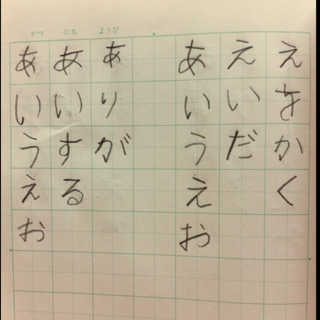 がつ にち ようび
えをかく
えいだ
あいうえお
ありが
あいする
あいうえお